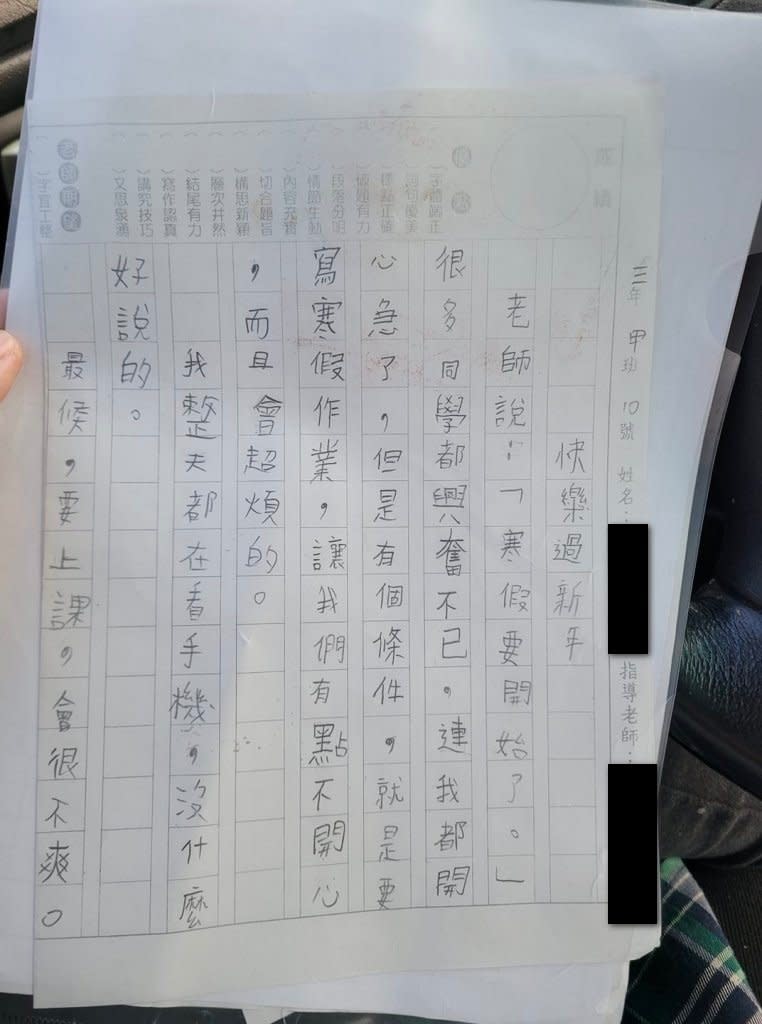 三年 甲班 10號 姓名：
指導老師：
快樂過新年
老師說：「寒假要開始了。」
很多同學都興奮不已，連我都開
心急了，但是有個條件，就是要
寫寒假作業，讓我們有點不開心
，而且會超煩的。
我整天都在看手機，沒什麼
好說的。
最候，要上課，會很不爽。
成績
優點
字體端正
詞句優美
標點正確
破題有力
段落分明
情節生動
內容充實
切合題旨
構思新穎
層次井然
結尾有力
寫作認真
講究技巧
文思泉湧
老師期望
字宜工整